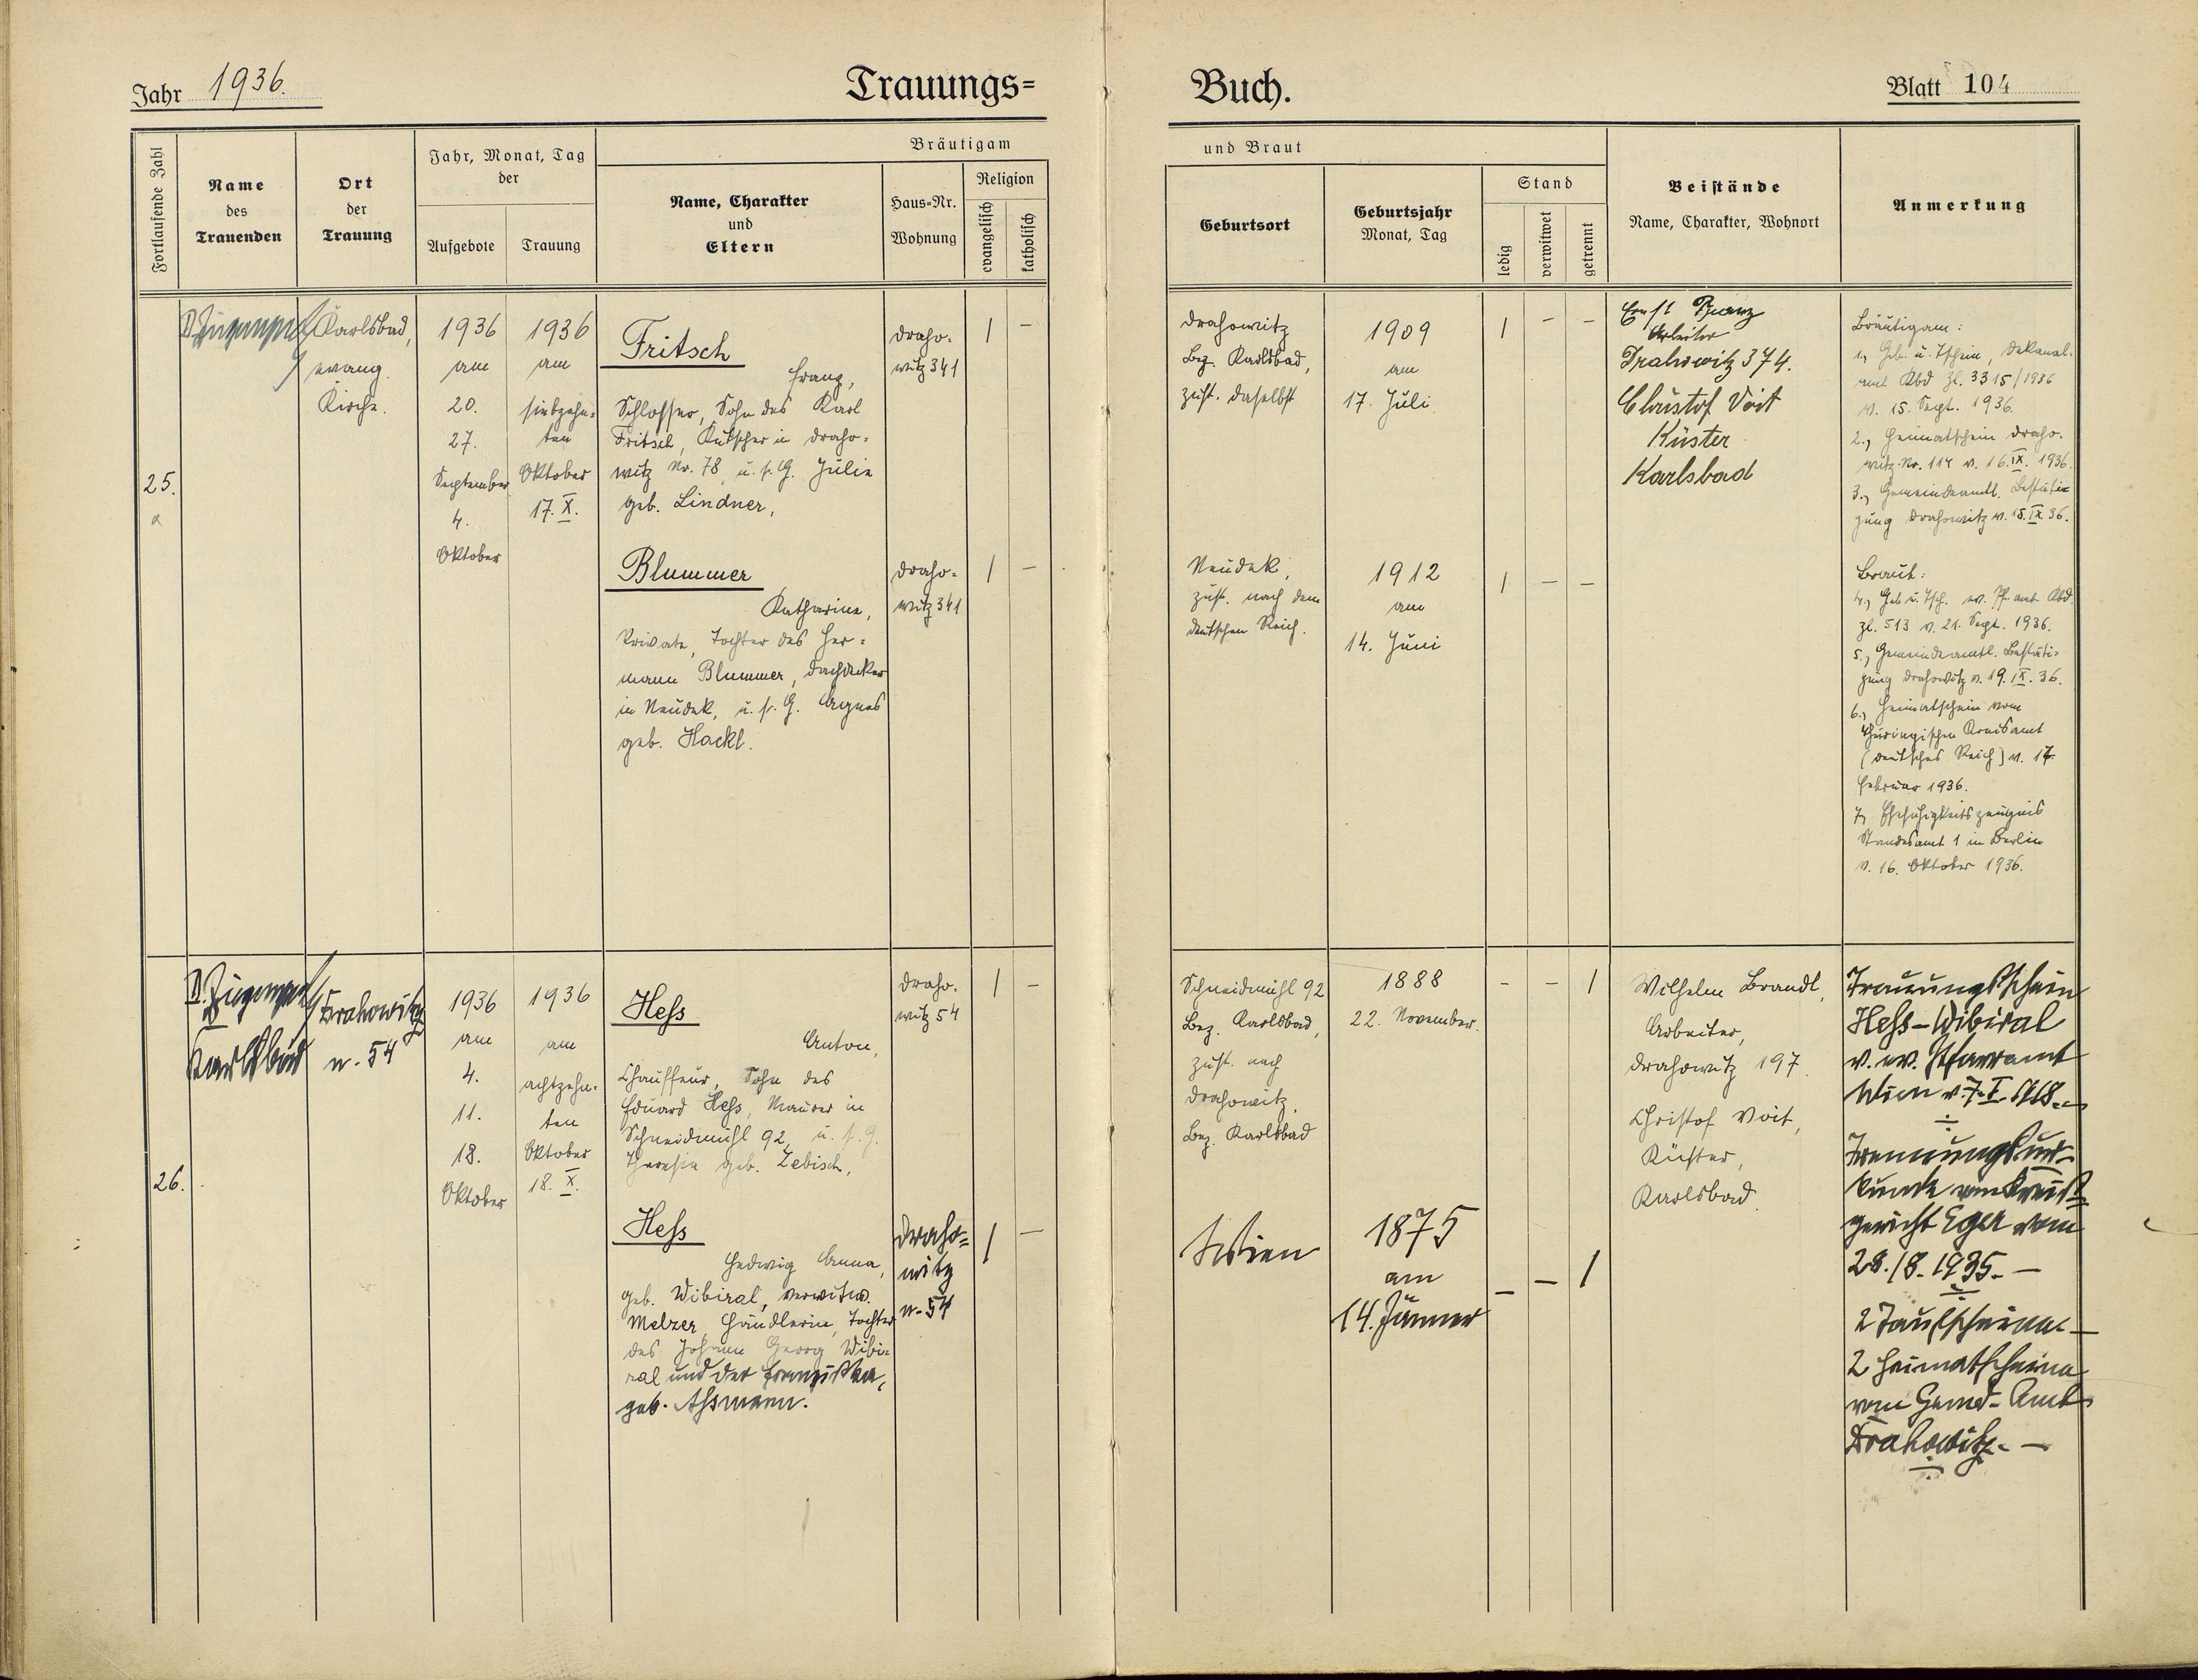 Jahr 1936.
Trauungs=
Buch.
Blatt 104
Fortlaufende Zahl
Name
des
Trauenden
Ort
der
Trauung
Jahr, Monat, Tag
der
Aufgebote
Trauung
Bräutigam
Name, Charakter
und
Eltern
Haus=Nr.
Wohnung
Religion
evangelisch
katholisch
und Braut
Geburtsort
Geburtsjahr
Monat, Tag
Stand
ledig
verwitwet
getrennt
Beistände
Name, Charakter, Wohnort
Anmerkung
25.
Karlsbad,
evang.
Kirche.
1936
am
20.
27.
September
4.
Oktober
1936
am
siebzehn=
ten
Oktober
17. X.
Fritsch
Franz,
Schlosser, Sohn des Karl
Fritsch, Kutscher in Draho=
witz Nr. 78, u. s. G. Julie
geb. Lindner,
Draho-
witz 341
1
–
Drahowitz
Bez. Karlsbad,
zust. daselbst
1909
am
17. Juli
1
–
–
Ernst Franz
Arbeiter
Drahowitz 374.
Christof Voit
Küster
Karlsbad
Bräutigam:
1., Geb. u. Tschein, Dekanal-
amt Kbd Zl. 3315/1936
v. 15. Sept. 1936.
2., Heimatschein Draho-
witz Nr. 114 v. 16. IX. 1936.
3., Gemeindeamtl. Bestäti=
gung Drahowitz v. 15. IX. 36.
Blummer
Katharine,
Private, Tochter des Her=
mann Blummer, Dachdecker
in Neudek, u. s. G. Agnes
geb. Hackl.
Draho=
witz 341
1
–
Neudek,
zust. nach dem
deutschen Reich.
1912
am
14. Juni
1
–
–
Braut:
4., Geb. u. Tsch. ev. Pf. amt Kbd.
Zl. 513 v. 21. Sept. 1936.
5., Gemeindeamtl. Bestäti=
gung Drahowitz v. 19. IX. 36.
6., Heimatschein vom
thüringischen Kreisamt
(deutsches Reich) v. 17.
Februar 1936.
7, Ehefähigkeitszeugnis
Standesamt 1 in Berlin
v. 16. Oktober 1936.
26.
Karlsbad
Drahowitz
n. 54
1936
am
4.
11.
18.
Oktober
1936
am
achtzehn-
ten
Oktober
18. X.
Hess
Anton,
Chauffeur, Sohn des
Eduard Hess, Maurer in
Schneidmühl 92, u. s. G.
Theresia geb. Zebisch,
Draho-
witz 54
1
–
Schneidmühl 92
Bez. Karlsbad,
zust. nach
Drahowitz,
Bez. Karlsbad
1888
22. November.
–
–
1
Wilhelm Brandl,
Arbeiter,
Drahowitz 197.
Christof Voit,
Küster,
Karlsbad.
Trauungsschein
Hess–Wibiral
v. ev. Pfarramt
Wien v. 7. I. 1918.–
Trennungsur-
kunde vom Kreis=
gericht Eger vom
28./8. 1935. –
2 Taufscheine –
2 Heimatscheine
vom Gemd-Amt
Drahowitz. –
Hess
Hedwig Anna,
geb. Wibiral, verwitw.
Melzer, Händlerin, Tochter
des Johann Georg Wibi-
ral und der Franziska,
geb. Assmann.
Draho=
witz
n. 54
1
–
Wien
1875
am
14. Jänner
–
–
1